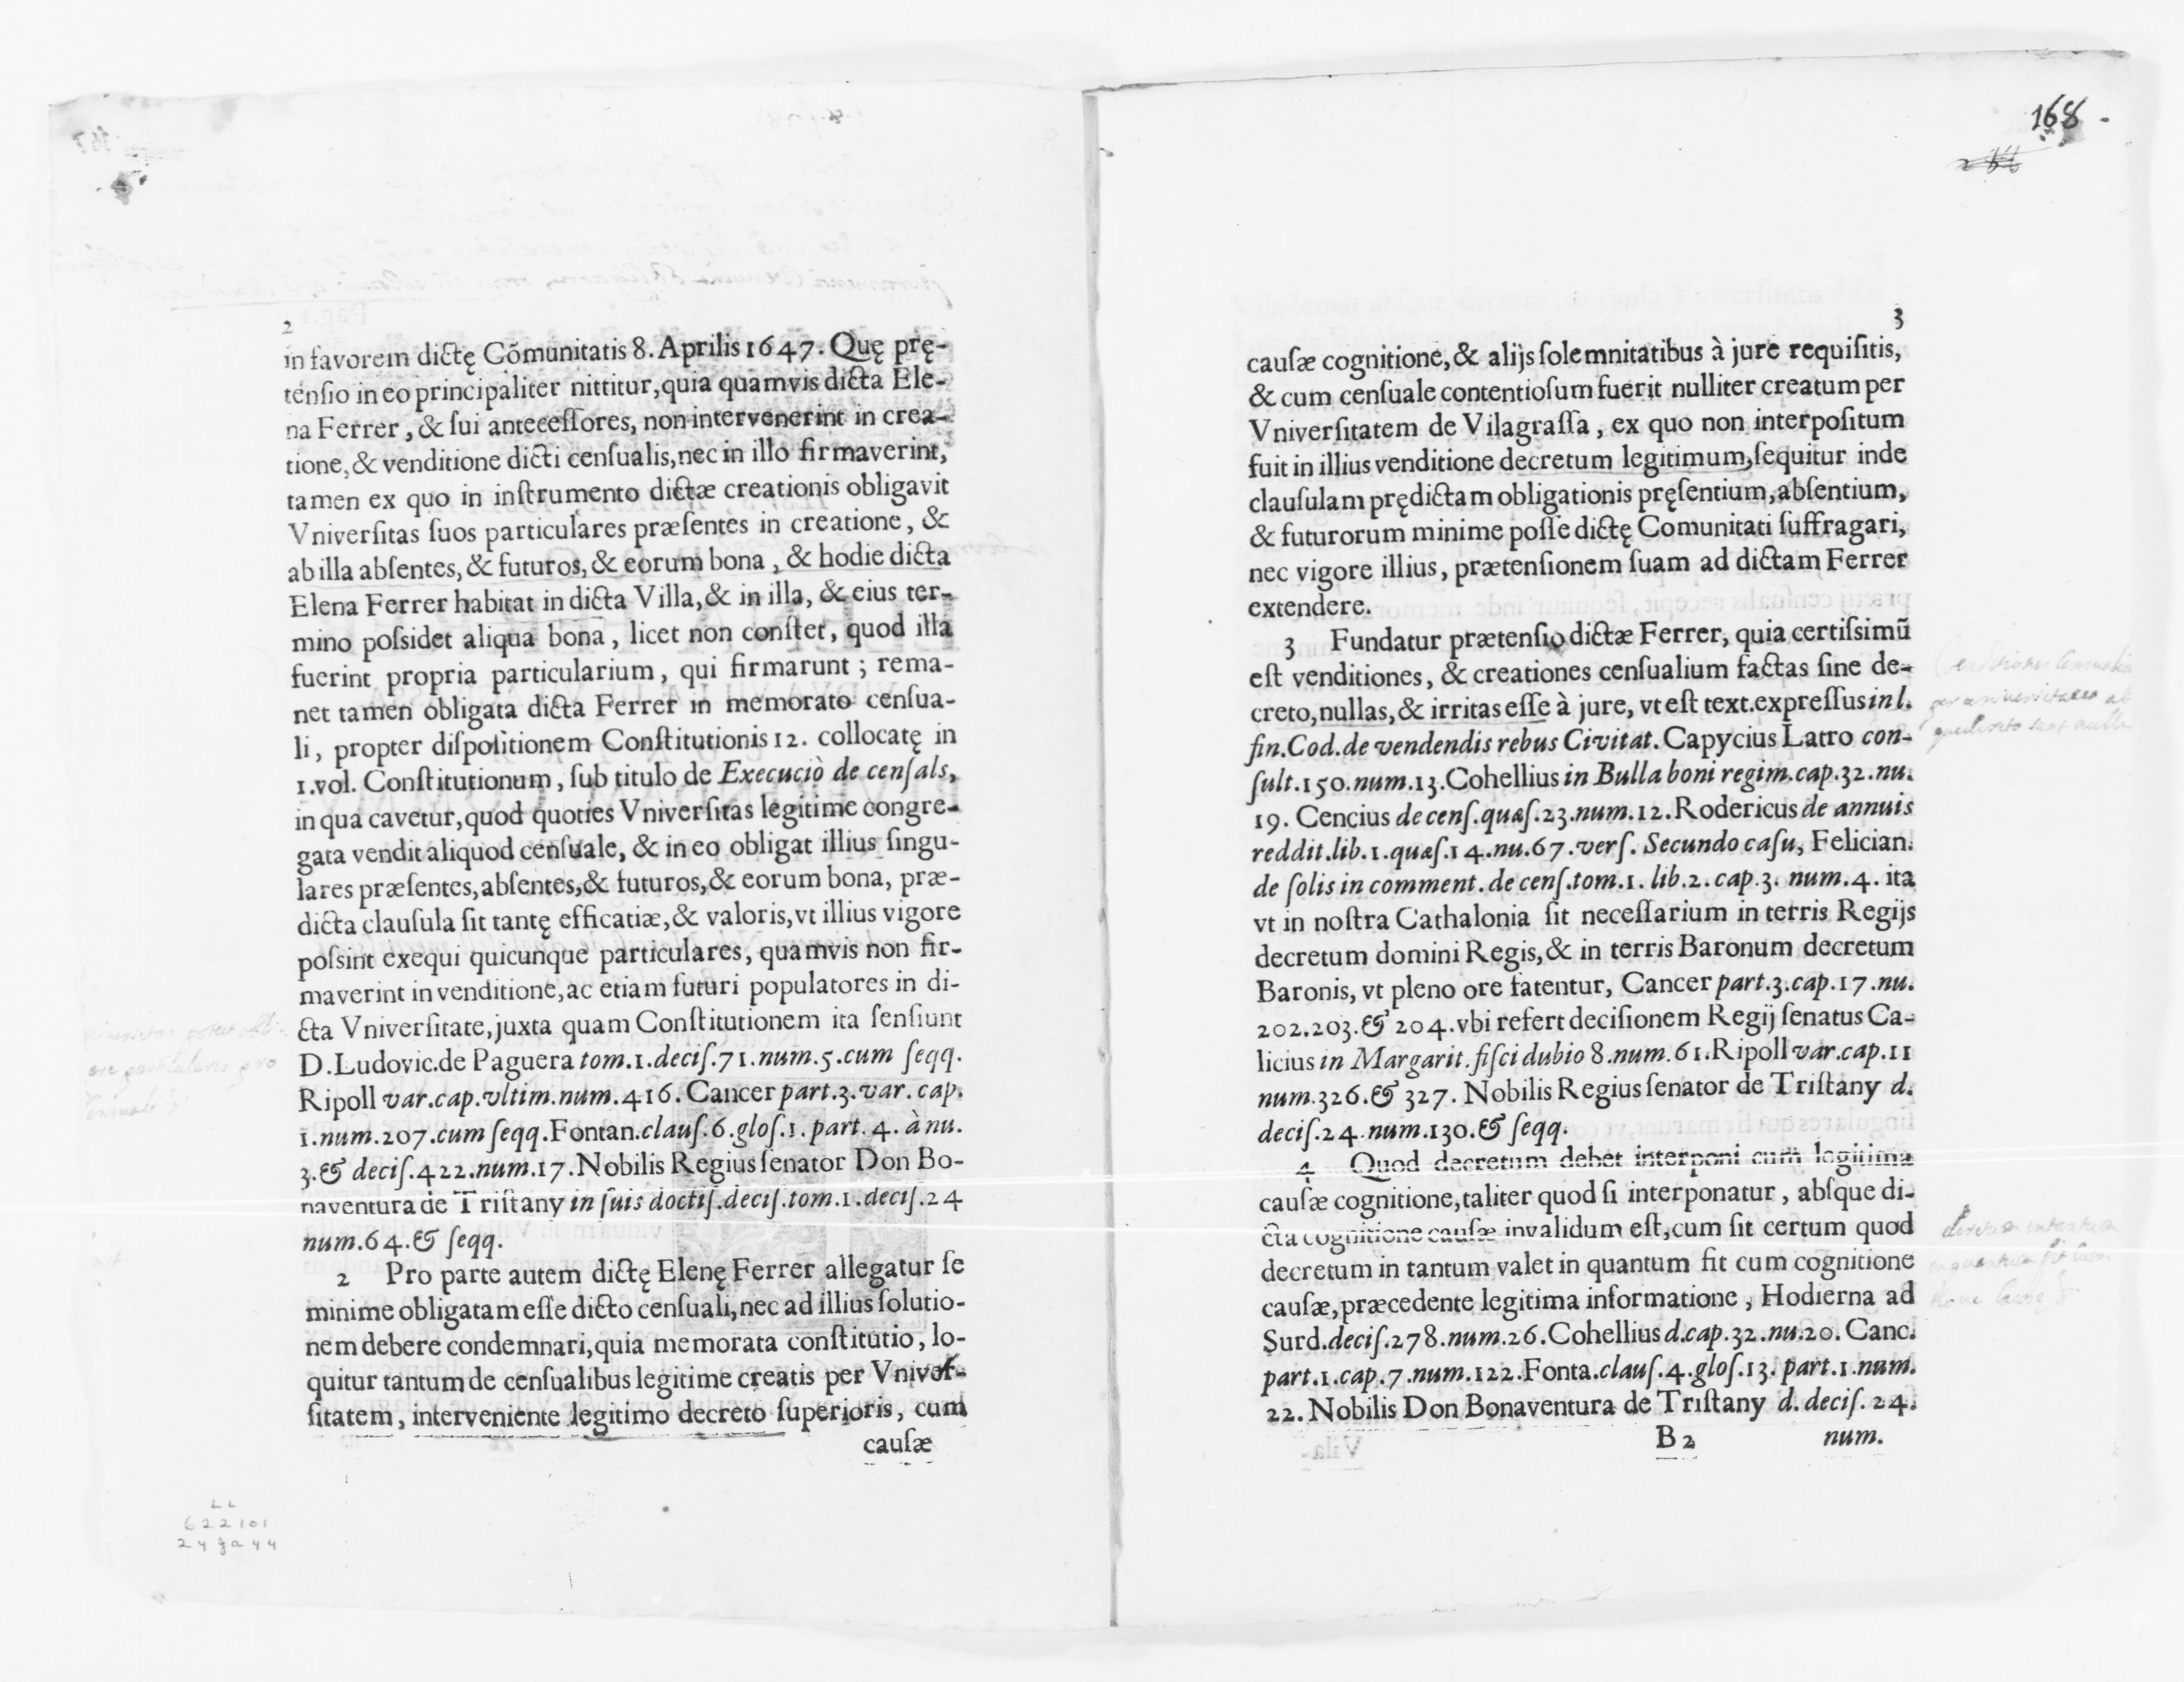 2
in favorem dictę Cõmunitatis 8. Aprilis 1647. Quę prę-
tensio in eo principaliter nittitur, quia quamvis dicta Ele-
na Ferrer, & sui antecessores, non intervenerint in crea-
tione, & venditione dicti censualis, nec in illo firmaverint,
tamen ex quo in instrumento dictæ creationis obligavit
Vniversitas suos particulares præsentes in creatione, &
ab illa absentes, & futuros, & eorum bona, & hodie dicta
Elena Ferrer habitat in dicta Villa, & in illa, & eius ter-
mino possidet aliqua bona, licet non constet, quod illa
fuerint propria particularium, qui firmarunt; rema-
net tamen obligata dicta Ferrer in memorato censua-
li, propter dispositionem Constitutionis 12. collocatę in
1. vol. Constitutionum, sub titulo de Execuciò de censals,
in qua cavetur, quod quoties Vniversitas legitime congre-
gata vendit aliquod censuale, & in eo obligat illius singu-
lares præsentes, absentes, & futuros, & eorum bona, præ-
dicta clausula sit tantę efficatiæ, & valoris, vt illius vigore
possint exequi quicunque particulares, quamvis non fir-
maverint in venditione, ac etiam futuri populatores in di-
cta Vniversitate, juxta quam Constitutionem ita sensiunt
D. Ludovic. de Paguera tom. 1. decis. 71. num. 5. cum seqq.
Ripoll var. cap. vltim. num. 416. Cancer part. 3. var. cap.
1. num. 207. cum seqq. Fontan. claus. 6. glos. 1. part. 4. à nu.
3. & decis. 422. num. 17. Nobilis Regius senator Don Bo-
naventura de Tristany in suis doctis. decis. tom. 1. decis. 24
num. 64. & seqq.
2 Pro parte autem dictę Elenę Ferrer allegatur se
minime obligatam esse dicto censuali, nec ad illius solutio-
nem debere condemnari, quia memorata constitutio, lo-
quitur tantum de censualibus legitime creatis per Vniver-
sitatem, interveniente legitimo decreto superioris, cum
causæ
LL
622101
24ga44
168
3
causæ cognitione, & alijs solemnitatibus à jure requisitis,
& cum censuale contentiosum fuerit nulliter creatum per
Vniversitatem de Vilagrassa, ex quo non interpositum
fuit in illius venditione decretum legitimum, sequitur inde
clausulam prędictam obligationis pręsentium, absentium,
& futurorum minime posse dictę Comunitati suffragari,
nec vigore illius, prætensionem suam ad dictam Ferrer
extendere.
3 Fundatur prætensio dictæ Ferrer, quia certissimũ
est venditiones, & creationes censualium factas sine de-
creto, nullas, & irritas esse à jure, vt est text. expressus in l.
fin. Cod. de vendendis rebus Civitat. Capycius Latro con-
sult. 150. num. 13. Cohellius in Bulla boni regim. cap. 32. nu.
19. Cencius de cens. quæs. 23. num. 12. Rodericus de annuis
reddit. lib. 1. quæs. 14. nu. 67. vers. Secundo casu, Felician.
de solis in comment. de cens. tom. 1. lib. 2. cap. 3. num. 4. ita
vt in nostra Cathalonia sit necessarium in terris Regijs
decretum domini Regis, & in terris Baronum decretum
Baronis, vt pleno ore fatentur, Cancer part. 3. cap. 17. nu.
202. 203. & 204. vbi refert decisionem Regij senatus Ca-
licius in Margarit. fisci dubio 8. num. 61. Ripoll var. cap. 11
num. 326. & 327. Nobilis Regius senator de Tristany d.
decis. 24. num. 130. & seqq.
4 Quod decretum debet interponi cum legitima
causæ cognitione, taliter quod si interponatur, absque di-
cta cognitione causæ invalidum est, cum sit certum quod
decretum in tantum valet in quantum fit cum cognitione
causæ, præcedente legitima informatione, Hodierna ad
Surd. decis. 278. num. 26. Cohellius d. cap. 32. nu. 20. Canc.
part. 1. cap. 7. num. 122. Fonta. claus. 4. glos. 13. part. 1. num.
22. Nobilis Don Bonaventura de Tristany d. decis. 24.
B 2 num.